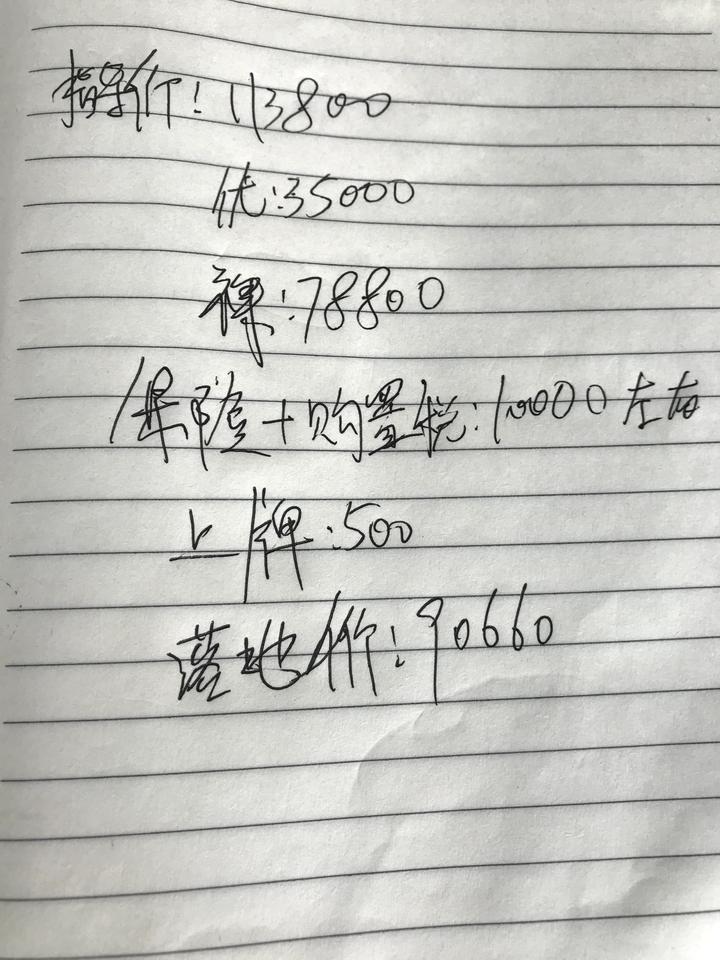 指导价:113800
优:35000
裸:78800
保险+购置税:10000左右
上牌:500
落地价:90660